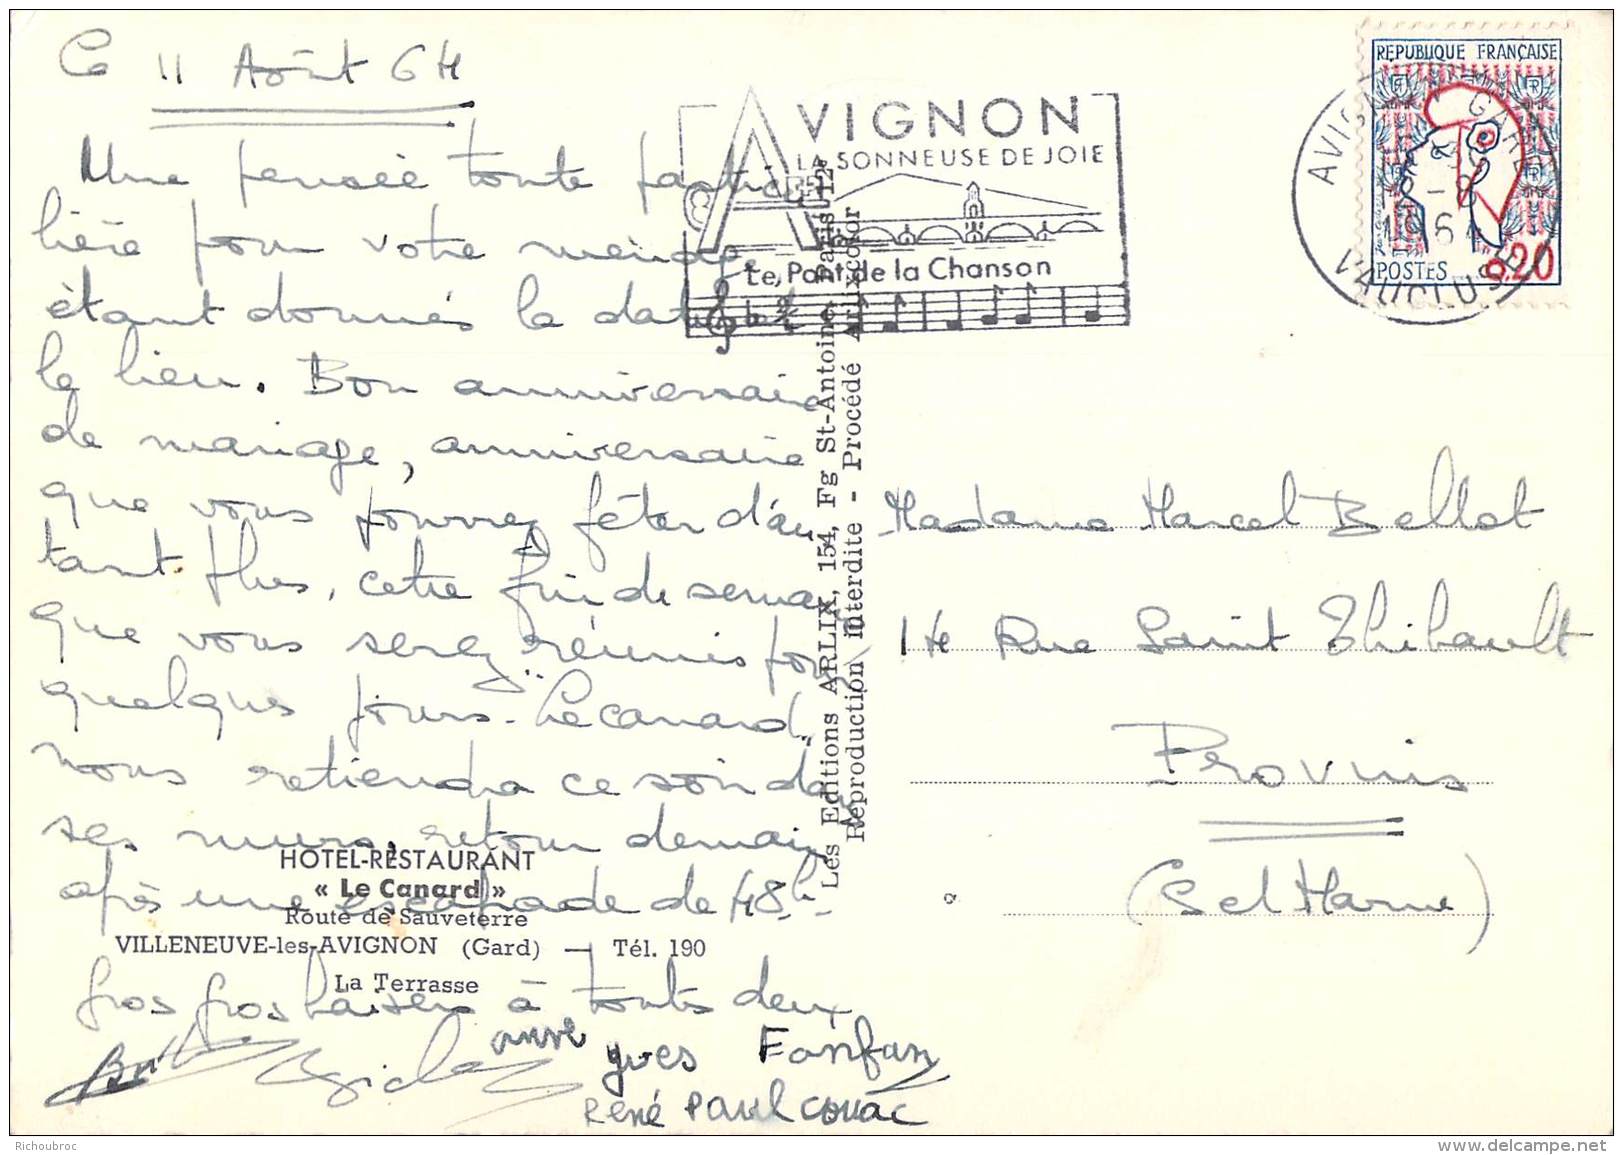 Ce 11 Août 64
Une pensée toute particu
lière pour votre ménage
étant donnés la date et
le lieu. Bon anniversaire
de mariage, anniversaire
que vous pourrez fêter d'au
tant plus, cette fin de semaine
que vous serez réunis pour
quelques jours. Le canard
nous retiendra ce soir dans
ses murs, retour demain
après une escapade de 48h.
gros gros baisers à touts deux
anne
yves Fanfan
René Paul couac
HOTEL-RESTAURANT
« Le Canard »
Route de Sauveterre
VILLENEUVE-les-AVIGNON (Gard) — Tél. 190
La Terrasse
Les Editions ARLIX, 154, Fg St-Antoine - Paris 12e
Reproduction interdite - Procédé Arlixcolor
AVIGNON
LA SONNEUSE DE JOIE
Le Pont de la Chanson
AVIGNON GARE
12-8
1964
VAUCLUSE
REPUBLIQUE FRANÇAISE
POSTES
0,20
Madame Marcel Bellot
14 Rue Saint Thibault
Provins
(Set Marne)
Richoubroc
www.delcampe.net